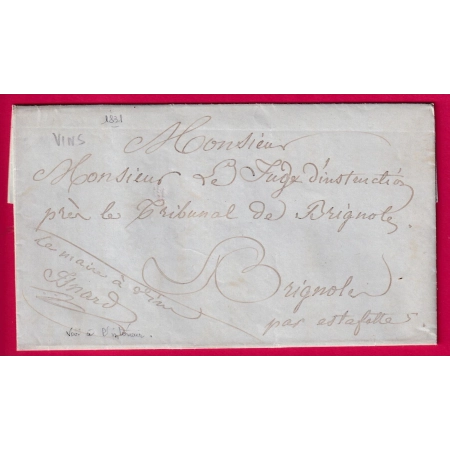 1831
VINS
Monsieur
Monsieur Le Juge d'instruction
près le Tribunal de Brignole
Le maire à Vins
Brignole
par estafette
Vins à